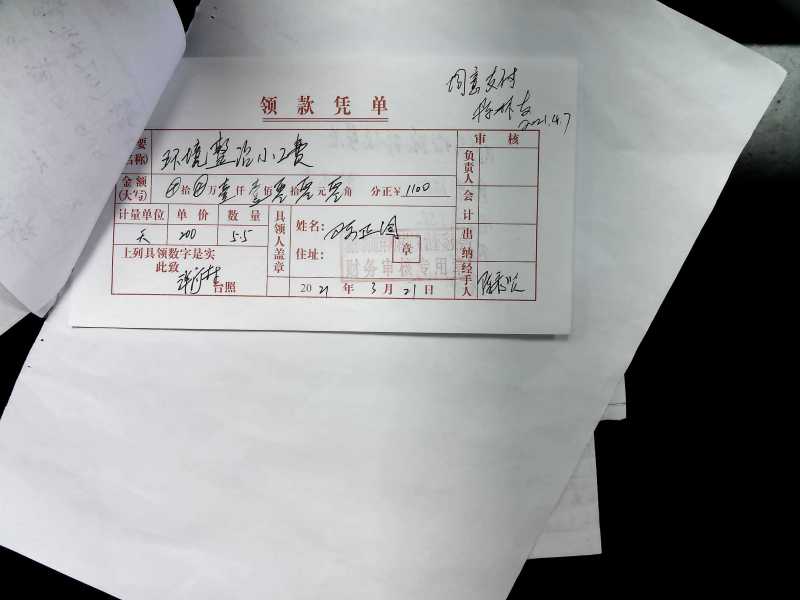 同意支付
2021.4.7
领款凭单
要 环境整治小工费 审核
名称) 负责人
金额 (大写) ⊗拾⊗万壹仟壹佰零拾零元零角 分正¥1100
会计
计量单位 单价 数量 具领人盖章 姓名:
天 200 5.5 出纳
上列具领数字是实 住址: 章
此致
台照 2021年3月21日 经手人